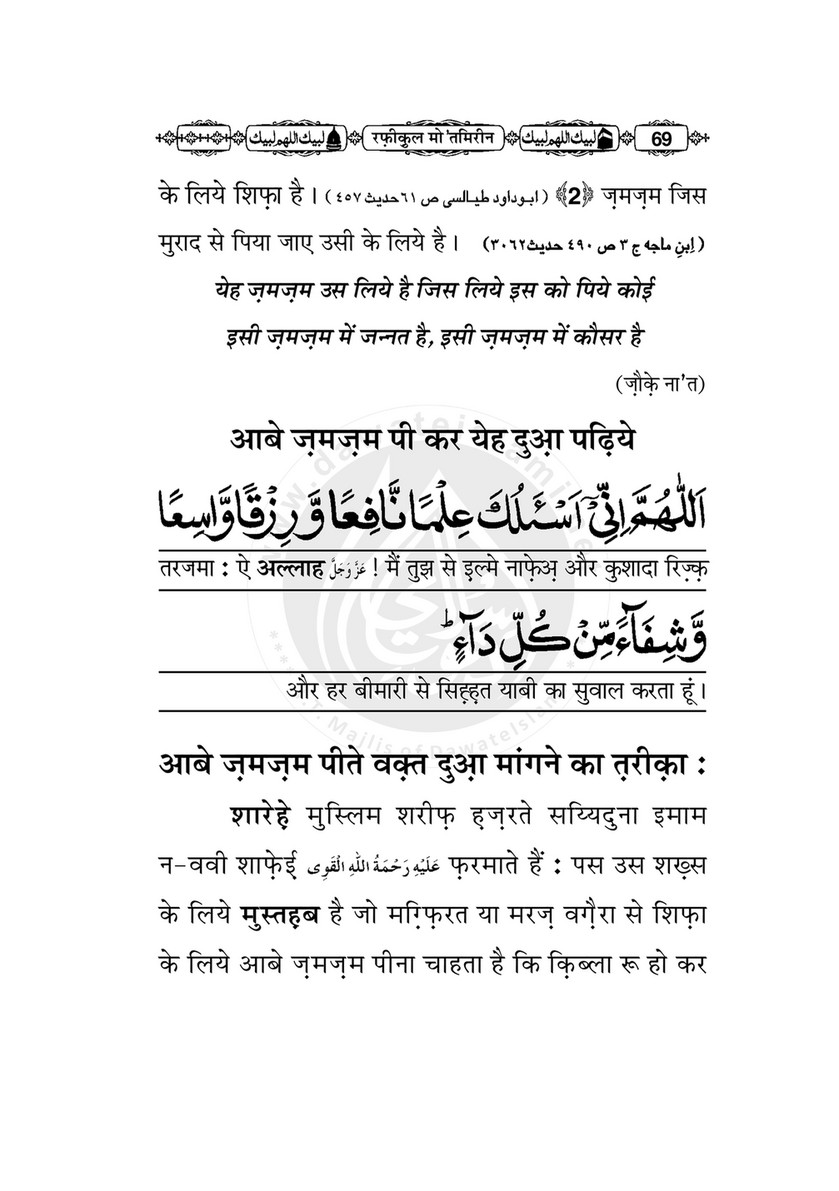 لبيك اللهم لبيك रफ़ीकुल मो'तमिरीन لبيك اللهم لبيك 69
के लिये शिफ़ा है। (ابوداود طیالسی ص ٦١ حدیث ٤٥٧) ﴾2﴿ ज़मज़म जिस
मुराद से पिया जाए उसी के लिये है। (اِبنِ ماجه ج ٣ ص ٤٩٠ حدیث ٣٠٦٢)
येह ज़मज़म उस लिये है जिस लिये इस को पिये कोई
इसी ज़मज़म में जन्नत है, इसी ज़मज़म में कौसर है
(ज़ौक़े ना'त)
आबे ज़मज़म पी कर येह दुआ़ पढ़िये
اَللّٰهُمَّ اِنِّیْۤ اَسْئَلُكَ عِلْمًا نَّافِعًا وَّ رِزْقًا وَّاسِعًا
तरजमा : ऐ अल्लाह عَزَّوَجَلَّ ! मैं तुझ से इल्मे नाफ़ेअ़ और कुशादा रिज़्क़
وَّ شِفَآءً مِّنْ كُلِّ دَآءٍ ؕ
और हर बीमारी से सिह़्ह़त याबी का सुवाल करता हूं।
आबे ज़मज़म पीते वक़्त दुआ़ मांगने का त़रीक़ा :
शारेह़े मुस्लिम शरीफ़ ह़ज़रते सय्यिदुना इमाम
न-ववी शाफ़ेई عَلَيْهِ رَحْمَةُ اللّٰهِ الْقَوِی फ़रमाते हैं : पस उस शख़्स
के लिये मुस्तह़ब है जो मग़्फ़िरत या मरज़ वग़ैरा से शिफ़ा
के लिये आबे ज़मज़म पीना चाहता है कि क़िब्ला रू हो कर